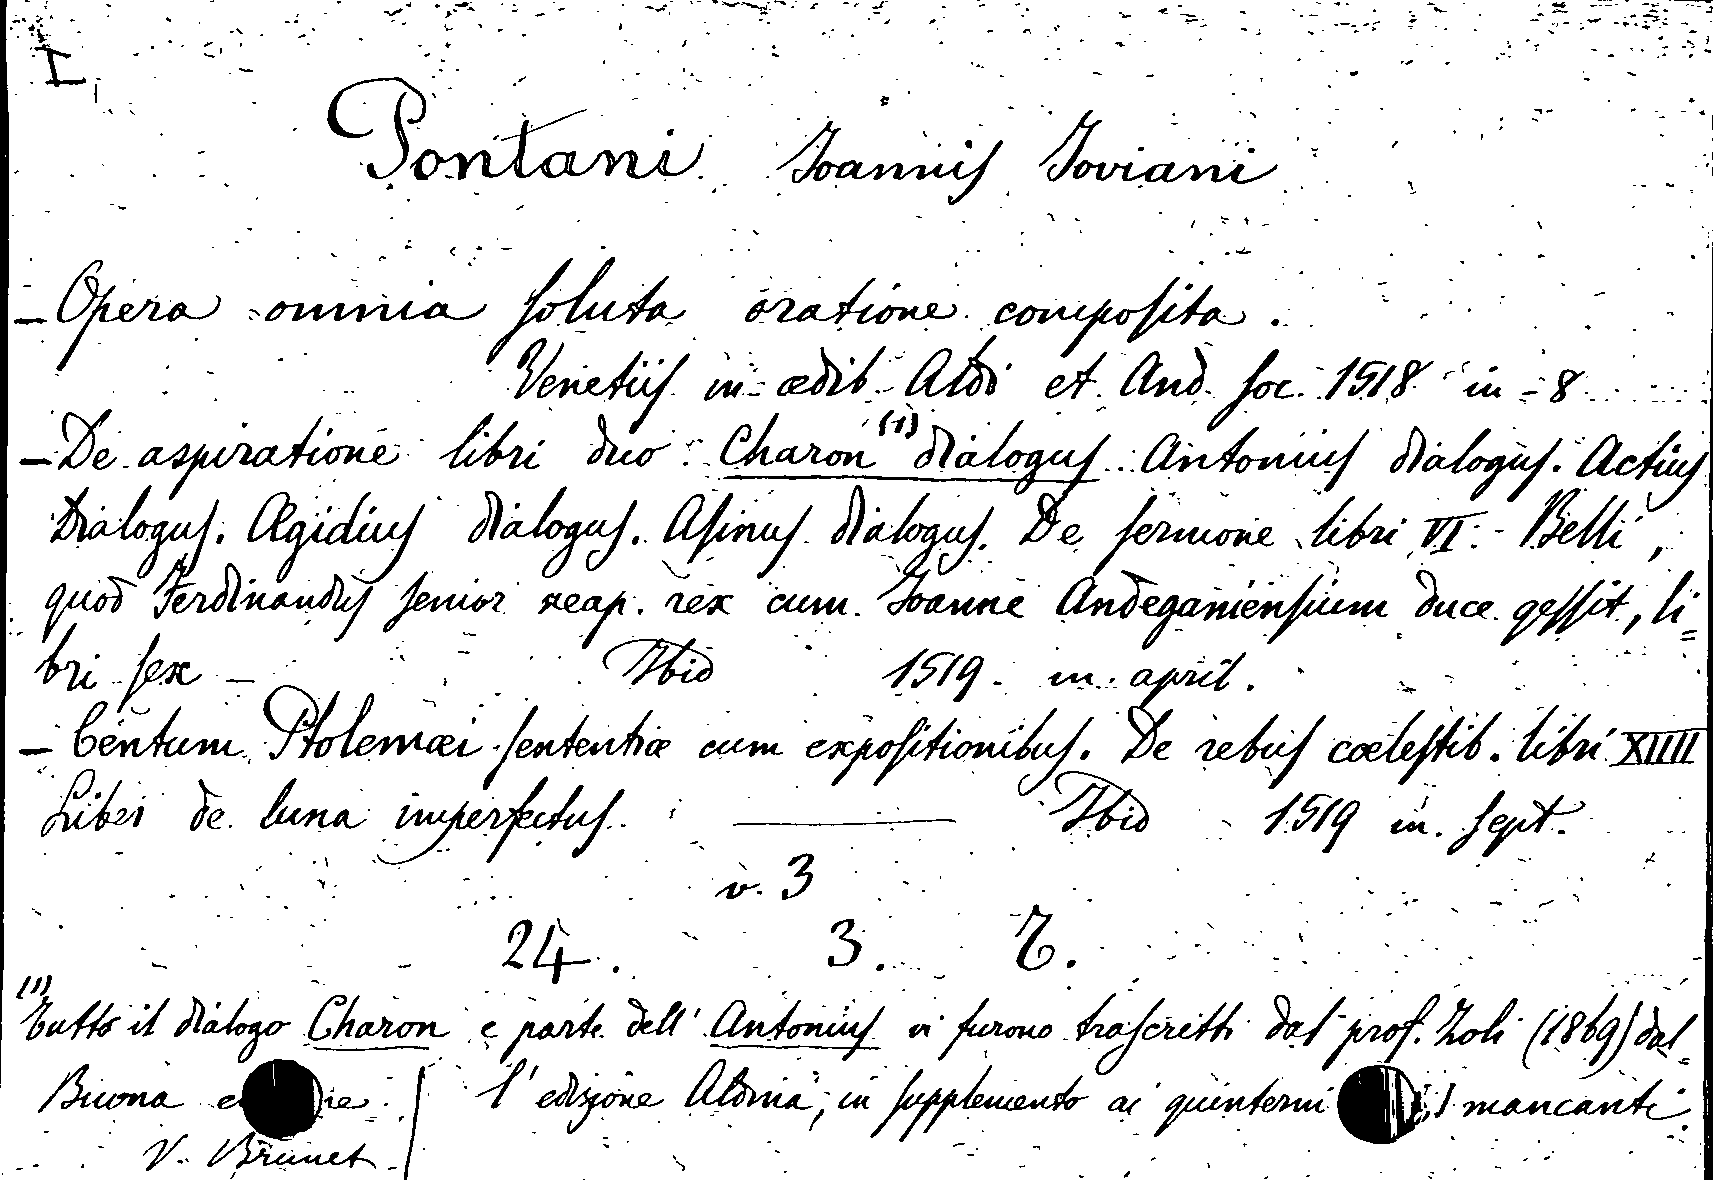 I
Pontani Joannis Joviani
- Opera omnia soluta oratione composita.
Venetiis in ædib Aldi et And. soc. 1518 in-8
- De aspiratione libri duo. Charon (1) dialogus. Antonius dialogus. Actius
Dialogus. Ægidius dialogus. Asinus dialogus. De sermone libri VI. - Belli,
quod Ferdinandus senior neap. rex cum Joanne Andeganiensium duce gessit, li=
bri sex - Ibid 1519. in april.
- Centum Ptolemæi sententiæ cum expositionibus. De rebus cœlestib. libri XIIII
Liber de luna imperfectus. ——— Ibid 1519 in sept.
v. 3
24. 3. 7.
(1) Tutto il dialogo Charon e parte dell' Antonius vi furono trascritti dal prof. Zoli (1869) dal-
Buona l' edizione Aldina, in supplemento ai quinterni mancanti.
V. Brunet